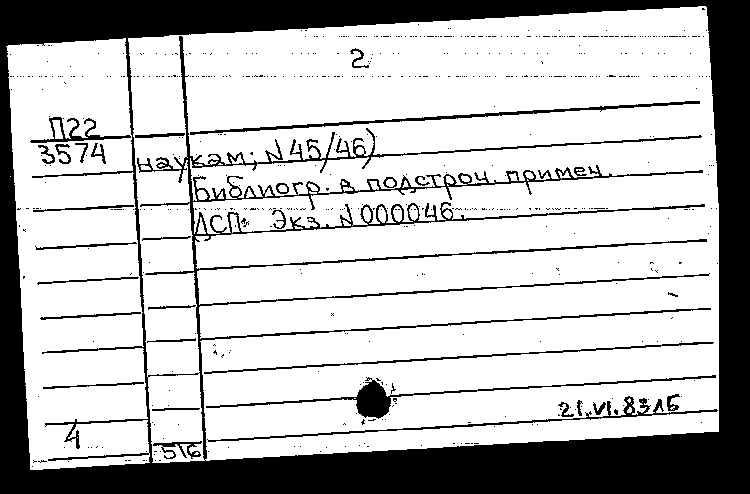 2
П22
3574
наукам; N45/46)
Библиогр. в подстроч. примеч.
ДСП. Экз. N000046.
21.VI.83ЛБ
4
516